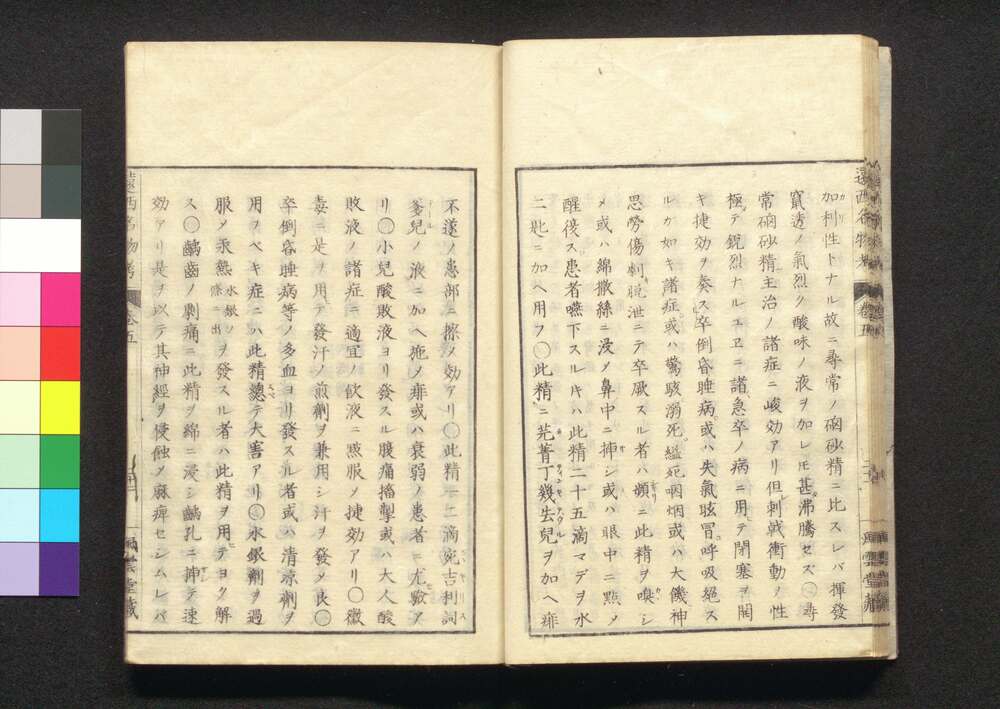 加利性トナル故ニ尋常ノ磠砂精ニ比スレバ揮發
竄透ノ氣烈ク酸味ノ液ヲ加レ𪜈甚沸騰セズ〇尋
常磠砂精主治ノ諸症ニ峻効アリ但刺戟衝動ノ性
極テ銳烈ナルユヱニ諸急卒ノ病ニ用テ閉塞ヲ開
キ捷効ヲ奏ス卒倒昏睡病或ハ失氣眩冒呼吸絕ス
ルカ如キ諸症或ハ驚駭溺死縊死咽烟或ハ大饑神
思勞傷刺脫泄ニテ卒厥スル者ハ頻ニ此精ヲ嗅シ
メ或ハ綿撒絲ニ浸メ鼻中ニ挿シ或ハ眼中ニ㸃メ
醒復ス患者嚥下スルキハ此精二十五滴マデヲ水
二匙ニ加ヘ用フ〇此精ニ芫菁丁幾去兒ヲ加ヘ痱
不遂ノ患部ニ擦メ効アリ〇此精一二滴宛吉利詞
爹兒ノ液ニ加ヘ施メ痱或ハ衰弱ノ患者ニ尤驗ア
リ〇小兒酸敗液ヨリ發スル腹痛搐搦或ハ大人酸
敗液ノ諸症ニ適宜ノ飮液ニ㸃服メ捷効アリ〇黴
毒ニ是ヲ用テ發汗ノ煎劑ヲ兼用シ汗ヲ發メ良〇
卒倒昏睡病等ノ多血ヨリ發スル者或ハ清凉劑ヲ
用フベキ症ニハ此精總テ大害アリ〇水銀劑ヲ過
服メ汞熱水銀ノ條ニ出ヅヲ發スル者ハ此精ヲ用テヨク解
ス〇齲齒ノ劇痛ニ此精ヲ綿ニ浸シ齲孔ニ挿テ速
効アリ是ヲ以テ其神經ヲ侵蝕メ麻痺セシムレバ
遠西名物考 卷五 風雲堂藏